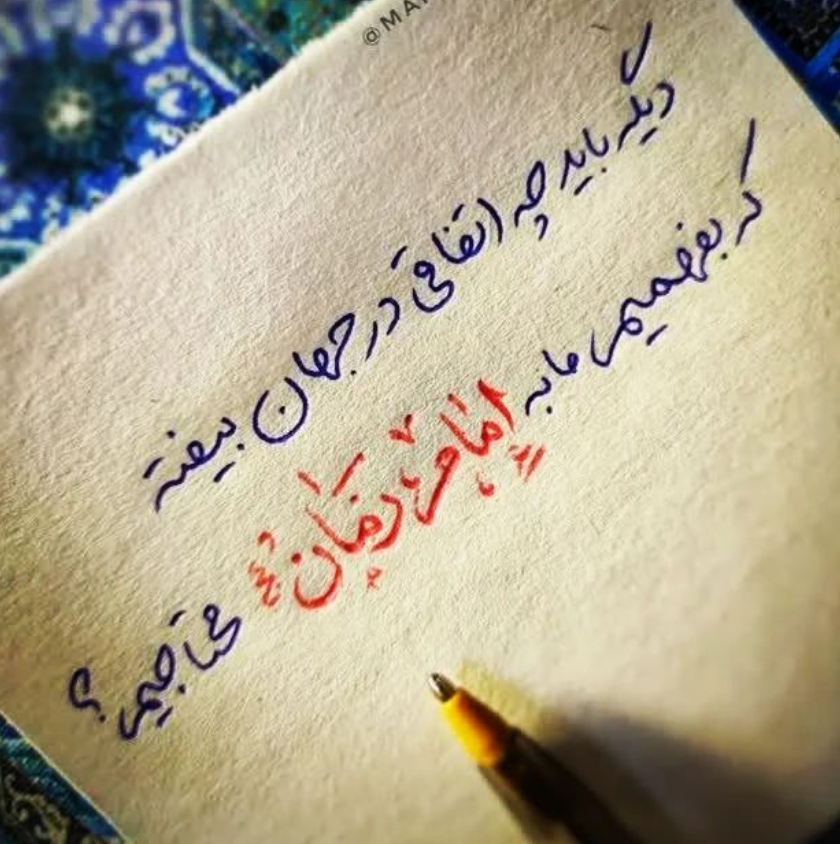 @MA
دیگه باید چه اتفاقی در جهان بیفته
که بفهمیم ما به امام زمان عج محتاجیم؟